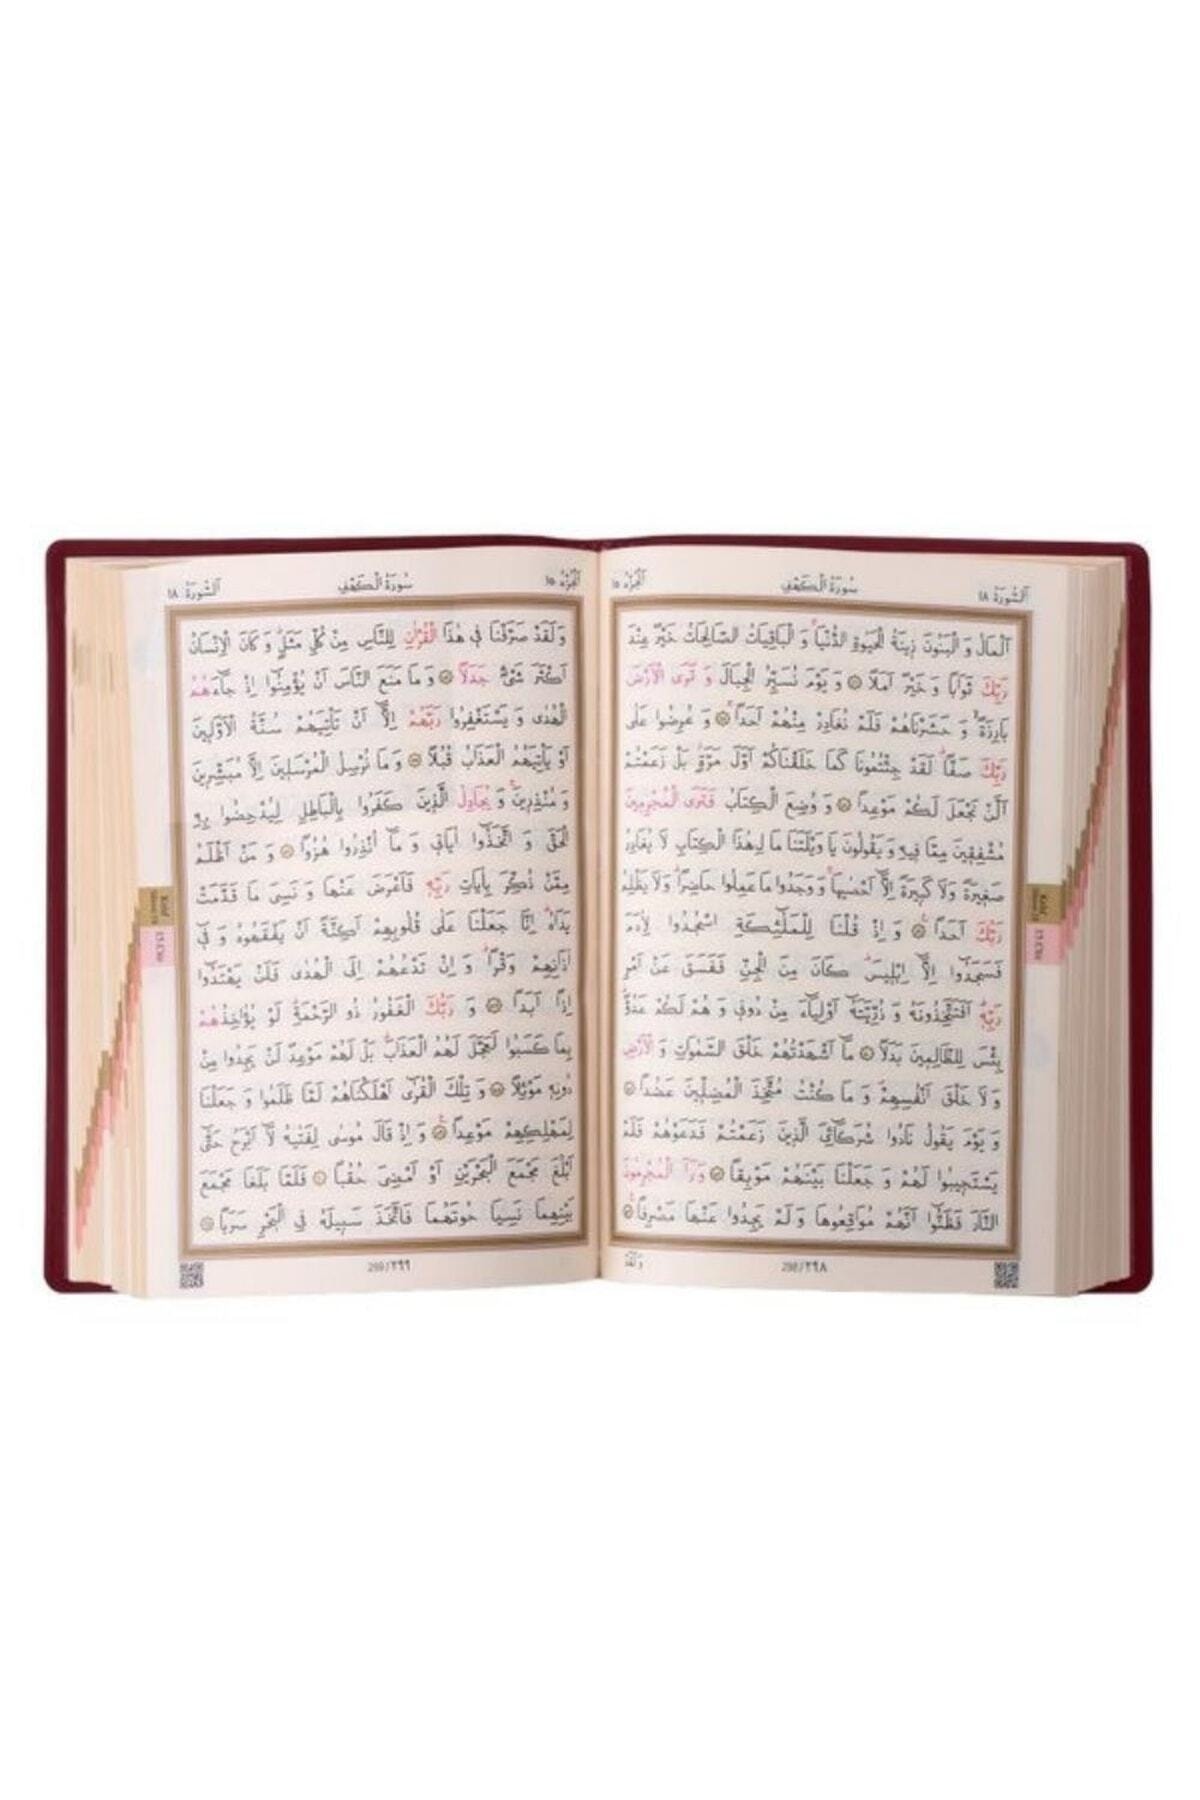 اَلسُّورَةُ ١٨
سُورَةُ الْكَهْفِ
اَلْجُزْءُ ١٥
اَلْمَالُ وَ الْبَنُونَ زِينَةُ الْحَيٰوةِ الدُّنْيَاۚ وَ الْبَاقِيَاتُ الصَّالِحَاتُ خَيْرٌ عِنْدَ
رَبِّكَ ثَوَابًا وَ خَيْرٌ اَمَلًا ۝ وَ يَوْمَ نُسَيِّرُ الْجِبَالَ وَ تَرَى الْاَرْضَ
بَارِزَةًۙ وَ حَشَرْنَاهُمْ فَلَمْ نُغَادِرْ مِنْهُمْ اَحَدًاۚ ۝ وَ عُرِضُوا عَلٰى
رَبِّكَ صَفًّاۜ لَقَدْ جِئْتُمُونَا كَمَا خَلَقْنَاكُمْ اَوَّلَ مَرَّةٍۘ بَلْ زَعَمْتُمْ
اَلَّنْ نَجْعَلَ لَكُمْ مَوْعِدًا ۝ وَ وُضِعَ الْكِتَابُ فَتَرَى الْمُجْرِمِينَ
مُشْفِقِينَ مِمَّا فِيهِ وَ يَقُولُونَ يَا وَيْلَتَنَا مَا لِهٰذَا الْكِتَابِ لَا يُغَادِرُ
صَغِيرَةً وَلَا كَبِيرَةً اِلَّٓا اَحْصٰيهَاۚ وَ وَجَدُوا مَا عَمِلُوا حَاضِرًاۜ وَلَا يَظْلِمُ
رَبُّكَ اَحَدًا۟ ۝ وَ اِذْ قُلْنَا لِلْمَلٰٓئِكَةِ اسْجُدُوا لِاٰدَمَ
فَسَجَدُٓوا اِلَّٓا اِبْلِيسَۜ كَانَ مِنَ الْجِنِّ فَفَسَقَ عَنْ اَمْرِ
رَبِّهِۜ اَفَتَتَّخِذُونَهُ وَ ذُرِّيَّتَهُٓ اَوْلِيَٓاءَ مِنْ دُونِي وَ هُمْ لَكُمْ عَدُوٌّۜ
بِئْسَ لِلظَّالِمِينَ بَدَلًا ۝ مَٓا اَشْهَدْتُهُمْ خَلْقَ السَّمٰوَاتِ وَ الْاَرْضِ
وَ لَا خَلْقَ اَنْفُسِهِمْۖ وَ مَا كُنْتُ مُتَّخِذَ الْمُضِلِّينَ عَضُدًا ۝
وَ يَوْمَ يَقُولُ نَادُوا شُرَكَٓائِيَ الَّذِينَ زَعَمْتُمْ فَدَعَوْهُمْ فَلَمْ
يَسْتَجِيبُوا لَهُمْ وَ جَعَلْنَا بَيْنَهُمْ مَوْبِقًا ۝ وَ رَاَ الْمُجْرِمُونَ
النَّارَ فَظَنُّٓوا اَنَّهُمْ مُوَاقِعُوهَا وَ لَمْ يَجِدُوا عَنْهَا مَصْرِفًا۟ ۝
298/٢٩٨
وَ لَقَدْ
اَلسُّورَةُ ١٨
سُورَةُ الْكَهْفِ
اَلْجُزْءُ ١٥
وَ لَقَدْ صَرَّفْنَا فِي هٰذَا الْقُرْاٰنِ لِلنَّاسِ مِنْ كُلِّ مَثَلٍۜ وَ كَانَ الْاِنْسَانُ
اَكْثَرَ شَيْءٍ جَدَلًا ۝ وَ مَا مَنَعَ النَّاسَ اَنْ يُؤْمِنُٓوا اِذْ جَٓاءَهُمُ
الْهُدٰى وَ يَسْتَغْفِرُوا رَبَّهُمْ اِلَّٓا اَنْ تَأْتِيَهُمْ سُنَّةُ الْاَوَّلِينَ
اَوْ يَأْتِيَهُمُ الْعَذَابُ قُبُلًا ۝ وَ مَا نُرْسِلُ الْمُرْسَلِينَ اِلَّا مُبَشِّرِينَ
وَ مُنْذِرِينَۚ وَ يُجَادِلُ الَّذِينَ كَفَرُوا بِالْبَاطِلِ لِيُدْحِضُوا بِهِ
الْحَقَّ وَ اتَّخَذُٓوا اٰيَاتِي وَ مَٓا اُنْذِرُوا هُزُوًا ۝ وَ مَنْ اَظْلَمُ
مِمَّنْ ذُكِّرَ بِاٰيَاتِ رَبِّهِ فَاَعْرَضَ عَنْهَا وَ نَسِيَ مَا قَدَّمَتْ
يَدَاهُۜ اِنَّا جَعَلْنَا عَلٰى قُلُوبِهِمْ اَكِنَّةً اَنْ يَفْقَهُوهُ وَ فِٓي
اٰذَانِهِمْ وَقْرًاۜ وَ اِنْ تَدْعُهُمْ اِلَى الْهُدٰى فَلَنْ يَهْتَدُٓوا
اِذًا اَبَدًا ۝ وَ رَبُّكَ الْغَفُورُ ذُو الرَّحْمَةِۜ لَوْ يُؤَاخِذُهُمْ
بِمَا كَسَبُوا لَعَجَّلَ لَهُمُ الْعَذَابَۜ بَلْ لَهُمْ مَوْعِدٌ لَنْ يَجِدُوا مِنْ
دُونِهِ مَوْئِلًا ۝ وَ تِلْكَ الْقُرٰٓى اَهْلَكْنَاهُمْ لَمَّا ظَلَمُوا وَ جَعَلْنَا
لِمَهْلِكِهِمْ مَوْعِدًا۟ ۝ وَ اِذْ قَالَ مُوسٰى لِفَتٰيهُ لَٓا اَبْرَحُ حَتّٰٓى
اَبْلُغَ مَجْمَعَ الْبَحْرَيْنِ اَوْ اَمْضِيَ حُقُبًا ۝ فَلَمَّا بَلَغَا مَجْمَعَ
بَيْنِهِمَا نَسِيَا حُوتَهُمَا فَاتَّخَذَ سَبِيلَهُ فِي الْبَحْرِ سَرَبًا ۝
299/٢٩٩